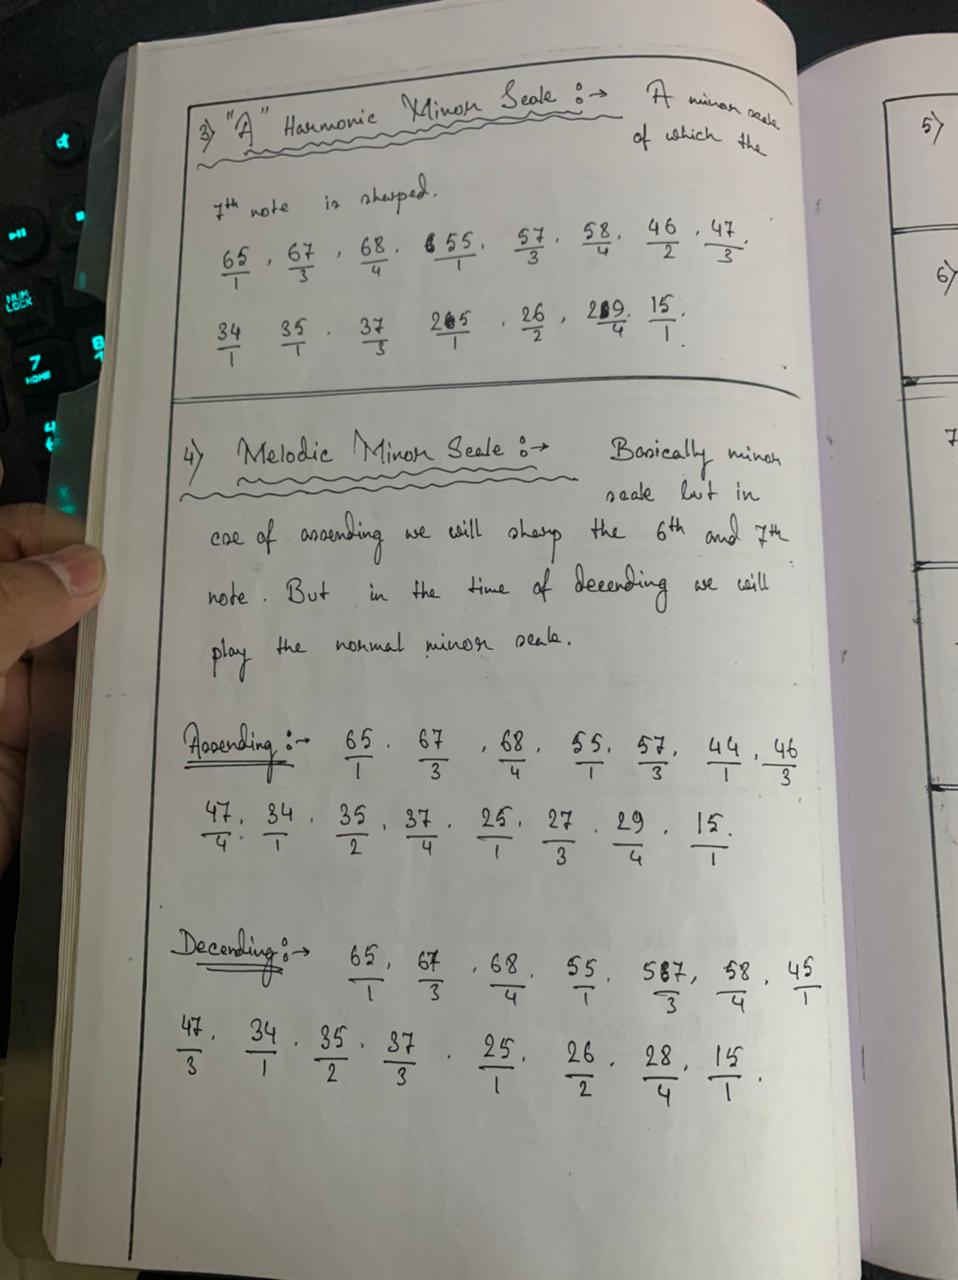 3) "A" Harmonic Minor Scale :→ A minor scale
of which the
7th note is sharped.
65/1 , 67/3 , 68/4 . 55/1 . 57/3 . 58/4 . 46/2 . 47/3 .
34/1 35/1 . 37/3 25/1 . 26/2 , 29/4 . 15/1 .
4) Melodic Minor Scale :→ Basically minor
scale but in
case of assending we will sharp the 6th and 7th
note . But in the time of decending we will
play the normal minor scale.
Assending :→ 65/1 . 67/3 , 68/4 . 55/1 . 57/3 . 44/1 , 46/3
47/4 . 34/1 . 35/2 , 37/4 . 25/1 . 27/3 . 29/4 . 15/1 .
Decending :→ 65/1 . 67/3 , 68/4 . 55/1 . 57/3 , 58/4 . 45/1
47/3 . 34/1 . 35/2 . 37/3 . 25/1 . 26/2 . 28/4 . 15/1 .
5)
6)
7
NUM
LOCK
7
HOME
8
4